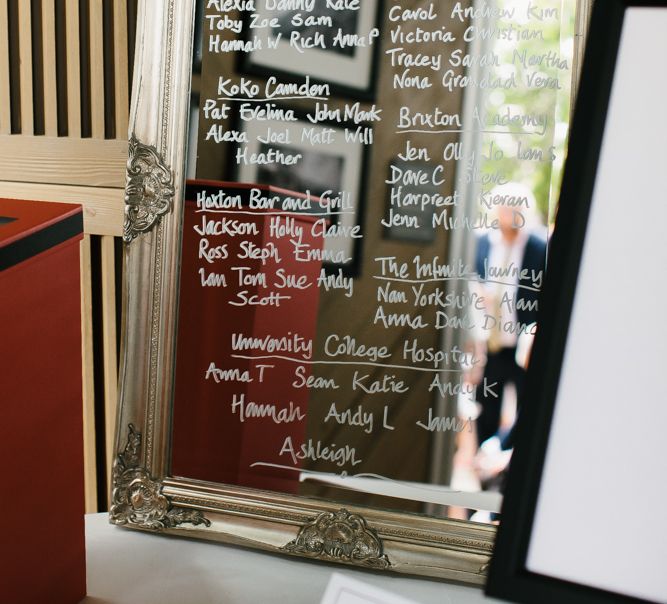 Alexia Danny Kate
Toby Zoe Sam
Hannah W Rich Anna P
Koko Camden
Pat Evelina John Mark
Alexa Joel Matt Will
Heather
Hoxton Bar and Grill
Jackson Holly Claire
Ross Steph Emma
Ian Tom Sue Andy
Scott
Carol Andrew Kim
Victoria Christian
Tracey Sarah Martha
Nona Grandad Vera
Brixton Academy
Jen Olly Jo Ian S
Dave C Steve
Harpreet Kieran
Jenn Michelle D
The Infinite Journey
Nan Yorkshire Alan
Anna Dave Diana
University College Hospital
Anna T Sean Katie Andy K
Hannah Andy L James
Ashleigh